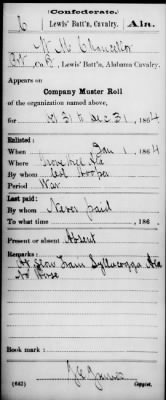 Confederate.
6 Lewis' Batt'n, Cavalry. Ala.
W. M. Chancellor
Pvt, Co. B, Lewis' Batt'n, Alabama Cavalry.
Appears on
Company Muster Roll
of the organization named above,
for Oct 31 to Dec 31, 1864
Enlisted:
When Jan 1, 1864
Where Grove Hill Ala
By whom
Period War
Last paid:
By whom Never paid
To what time , 186
Present or absent Absent
Remarks: 
No Horse
Book mark:
(642) Copyist.